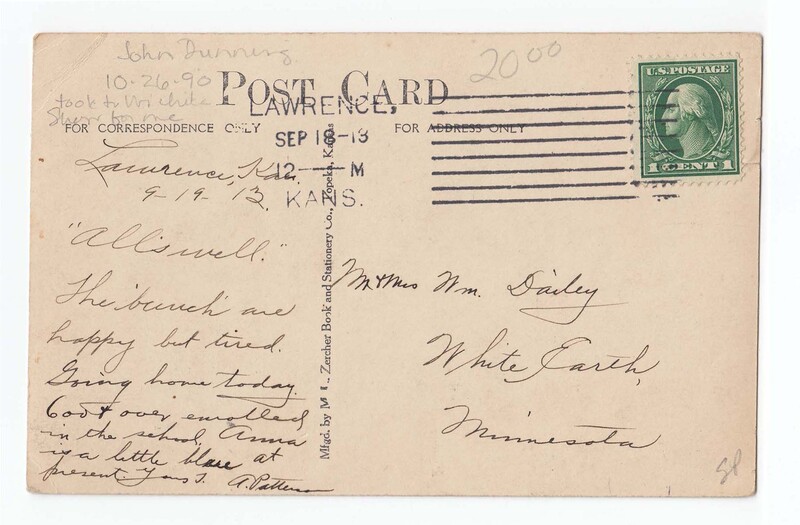 John Dunning
20 00
10-26-90
took to Wichita
Show for me
POST CARD
FOR CORRESPONDENCE ONLY
FOR ADDRESS ONLY
LAWRENCE,
SEP 18-13
12—M
KANS.
U.S. POSTAGE
1 CENT 1
Lawrence, Kan.
9-19-13
"All's well."
The 'bunch' are
happy but tired.
Going home today.
600 & over enrolled
in the school. Anna
is a little blue at
present. Yours T.
A. Patterson
Mfgd. by Zercher Book and Stationery Co., Topeka, Kans.
Mr & Mrs Wm. Dailey
White Earth,
Minnesota